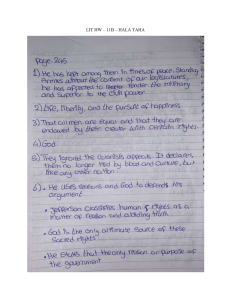 LIT HW - 11B - HALA TAHA
Page: 205
1) He has kept among them in times of peace, Standing
Armies without the consent of our legislatures,
he has affected to render the military
and superior to the civil power.
2) Life, liberty, and the pursuit of happiness
3) That all men are equal and that they are
endowed by their creator with certain rights.
4) God
5) They ignored the colonists appeals. It declares
them no longer tied by blood and culture, but
like any other nation.
6) • He uses reasons and God to defends his
argument
• Jefferson classifies human rights as a
matter of reason and abiding truth.
• God is the only ultimate source of these
sacred rights
• He states that the only reason or purpose of
the government